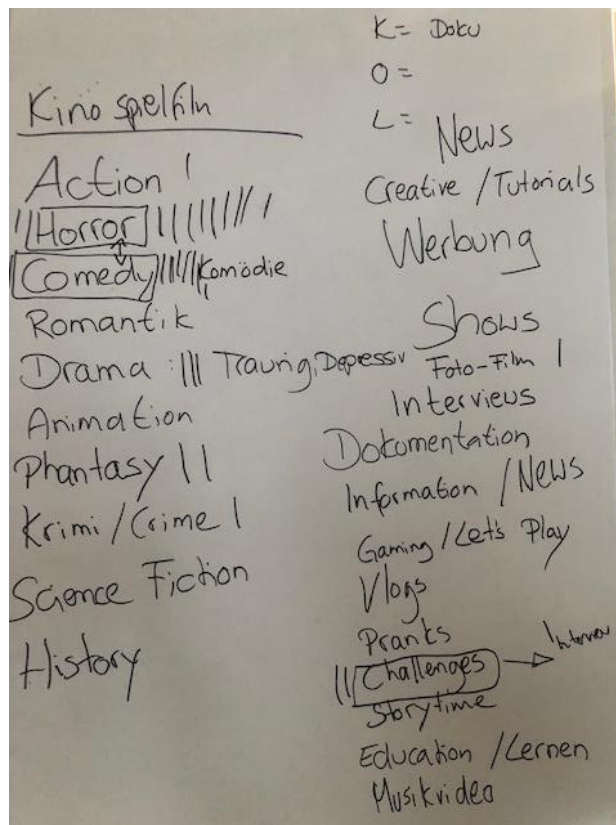 Kino spielfilm
Action |
|||Horror |||||||||
Comedy |||||| Komödie
Romantik
Drama : ||| Traurig, Depressiv
Animation
Phantasy ||
Krimi / Crime |
Science Fiction
History
K = Doku
O =
L =
News
Creative / Tutorials
Werbung
Shows
Foto-Film |
Interviews
Dokumentation
Information / News
Gaming / Let's Play
Vlogs
Pranks
|| Challenges → Interview
Storytime
Education / Lernen
Musikvideo